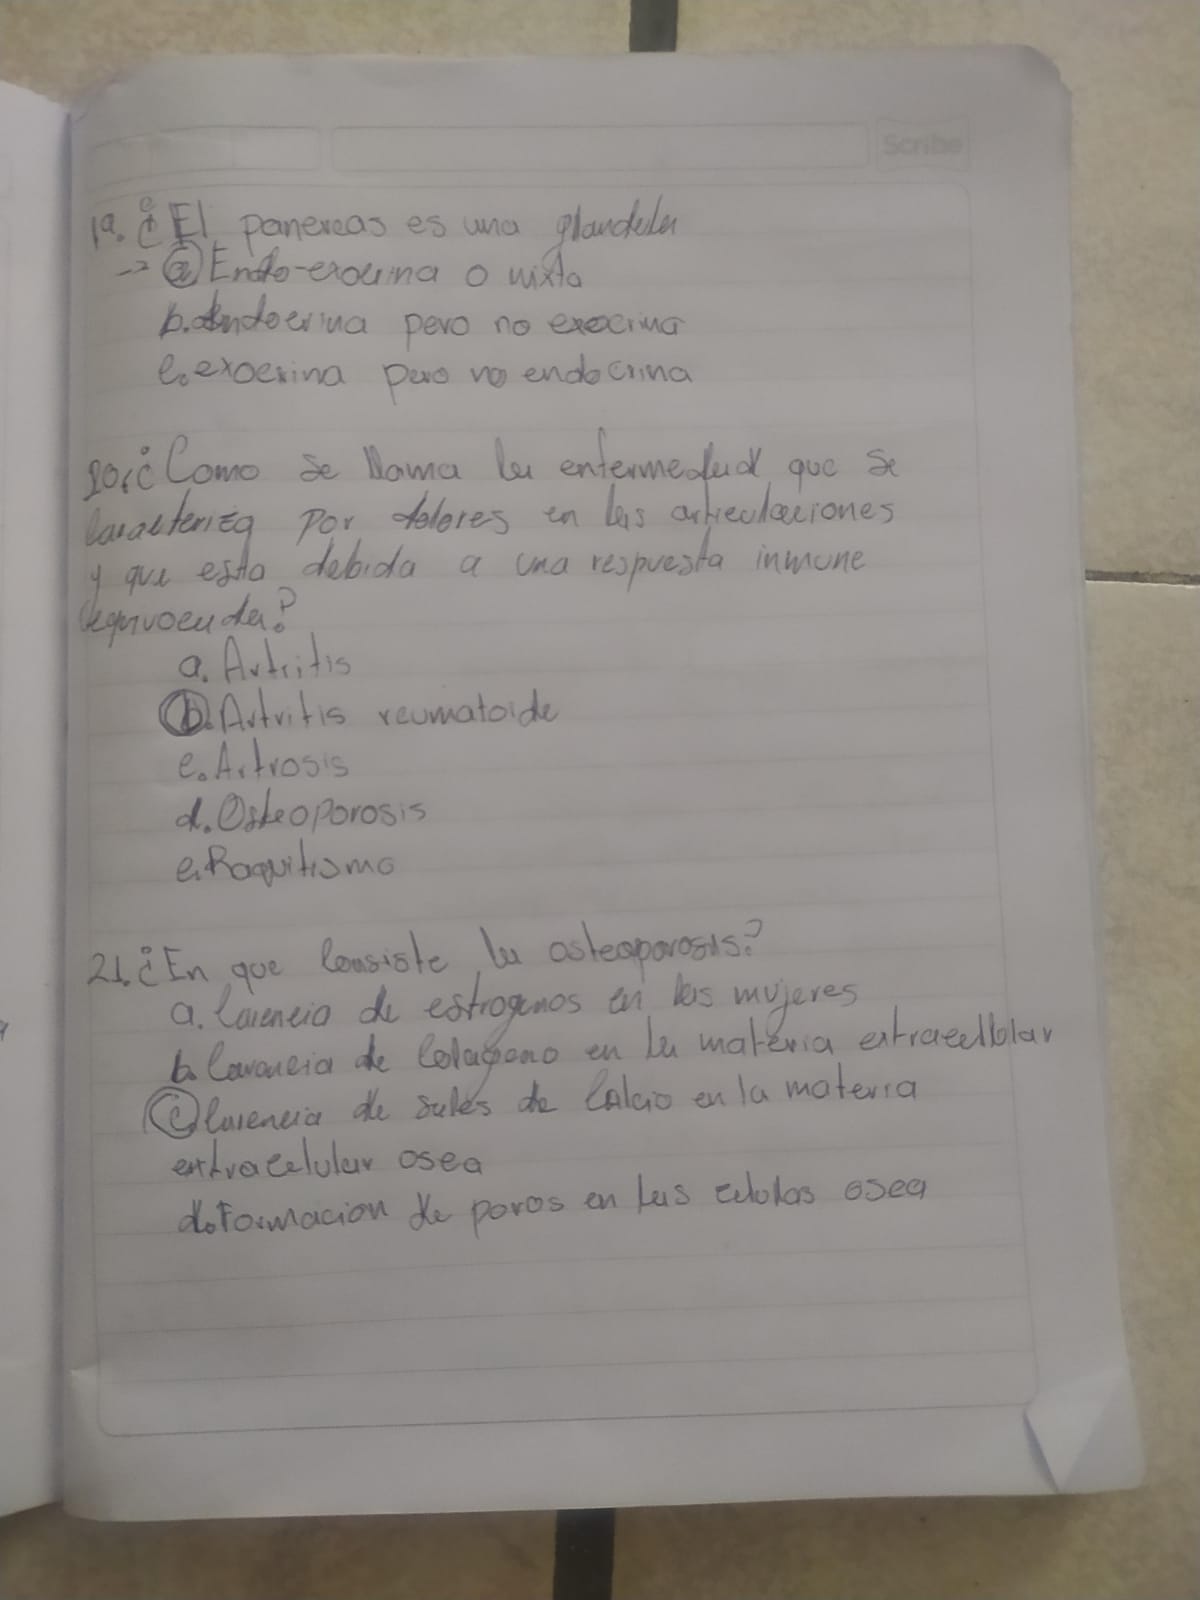 Scribe
19. ¿El panereas es una glandula
-> a Endo-exocrina o mixta
b. Endocrina pero no exocrina
c. exocrina pero no endocrina
20. ¿Como se llama la enfermedad que se
caracteriza por dolores en las articulaciones
y que esta debida a una respuesta inmune
equivocada?
a. Artritis
b. Artritis reumatoide
c. Artrosis
d. Osteoporosis
e. Raquitismo
21. ¿En que consiste la osteoporosis?
a. Carencia de estrogenos en las mujeres
b. Carencia de Colageno en la materia extracelular
c Carencia de sales de Calcio en la materia
extracelular osea
d. Formacion de poros en las celulas osea